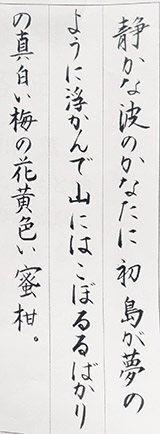 静かな波のかなたに初島が夢の
ように浮かんで山にはこぼるるばかり
の真白い梅の花黄色い蜜柑。